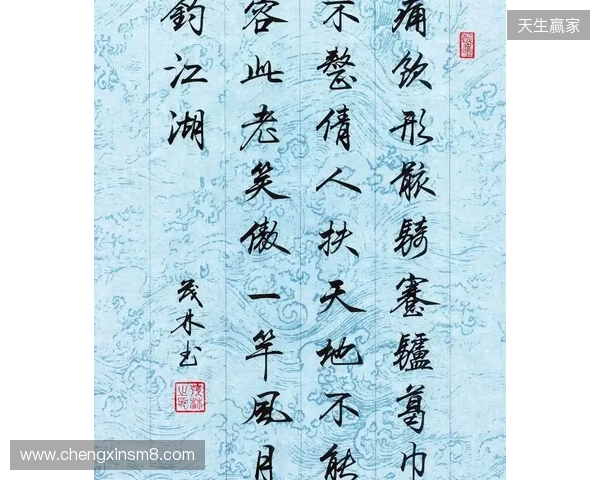 痛飲形骸騎蹇驢葛巾
不整倩人扶天地不能
容此老笑傲一竿風月
釣江湖
茂林书
天生赢家
www.chengxinsm8.com